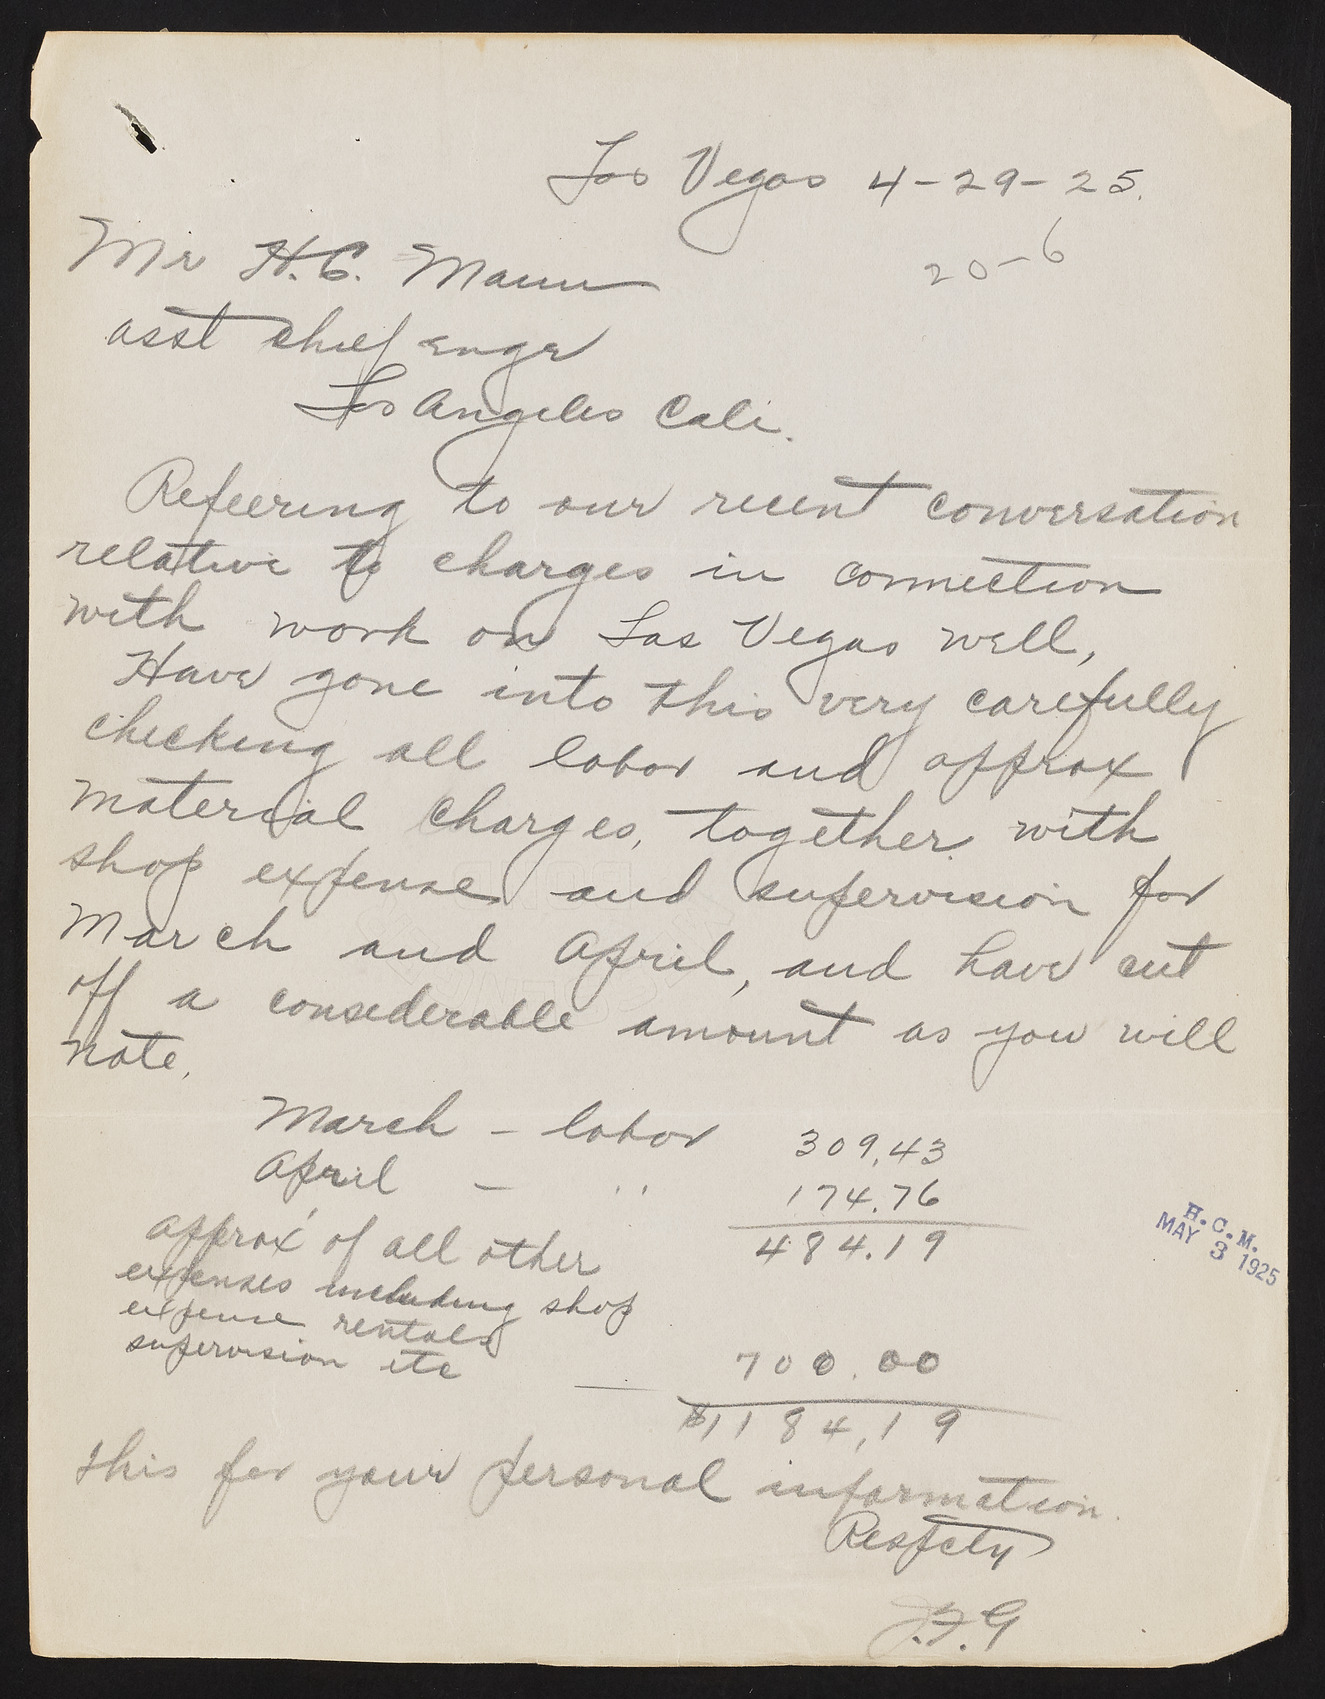 Las Vegas 4-29-25.
20-6
Mr H.C. Mann
asst chief engr
Los Angeles Cali.
Refeering to our recent conversation
relative to charges in connection
with work on Las Vegas well,
Have gone into this very carefully
checking all labor and approx
material charges, together with
shop expense and supervision for
March and April, and have cut
off a considerable amount as you will
note.
March - labor 309.43
April - " 174.76
484.19
approx of all other
expenses including shop
expense rentals
supervision etc
700.00
$1184.19
this for your personal information.
Respcty
J.F.G
H.C.M.
MAY 3 1925